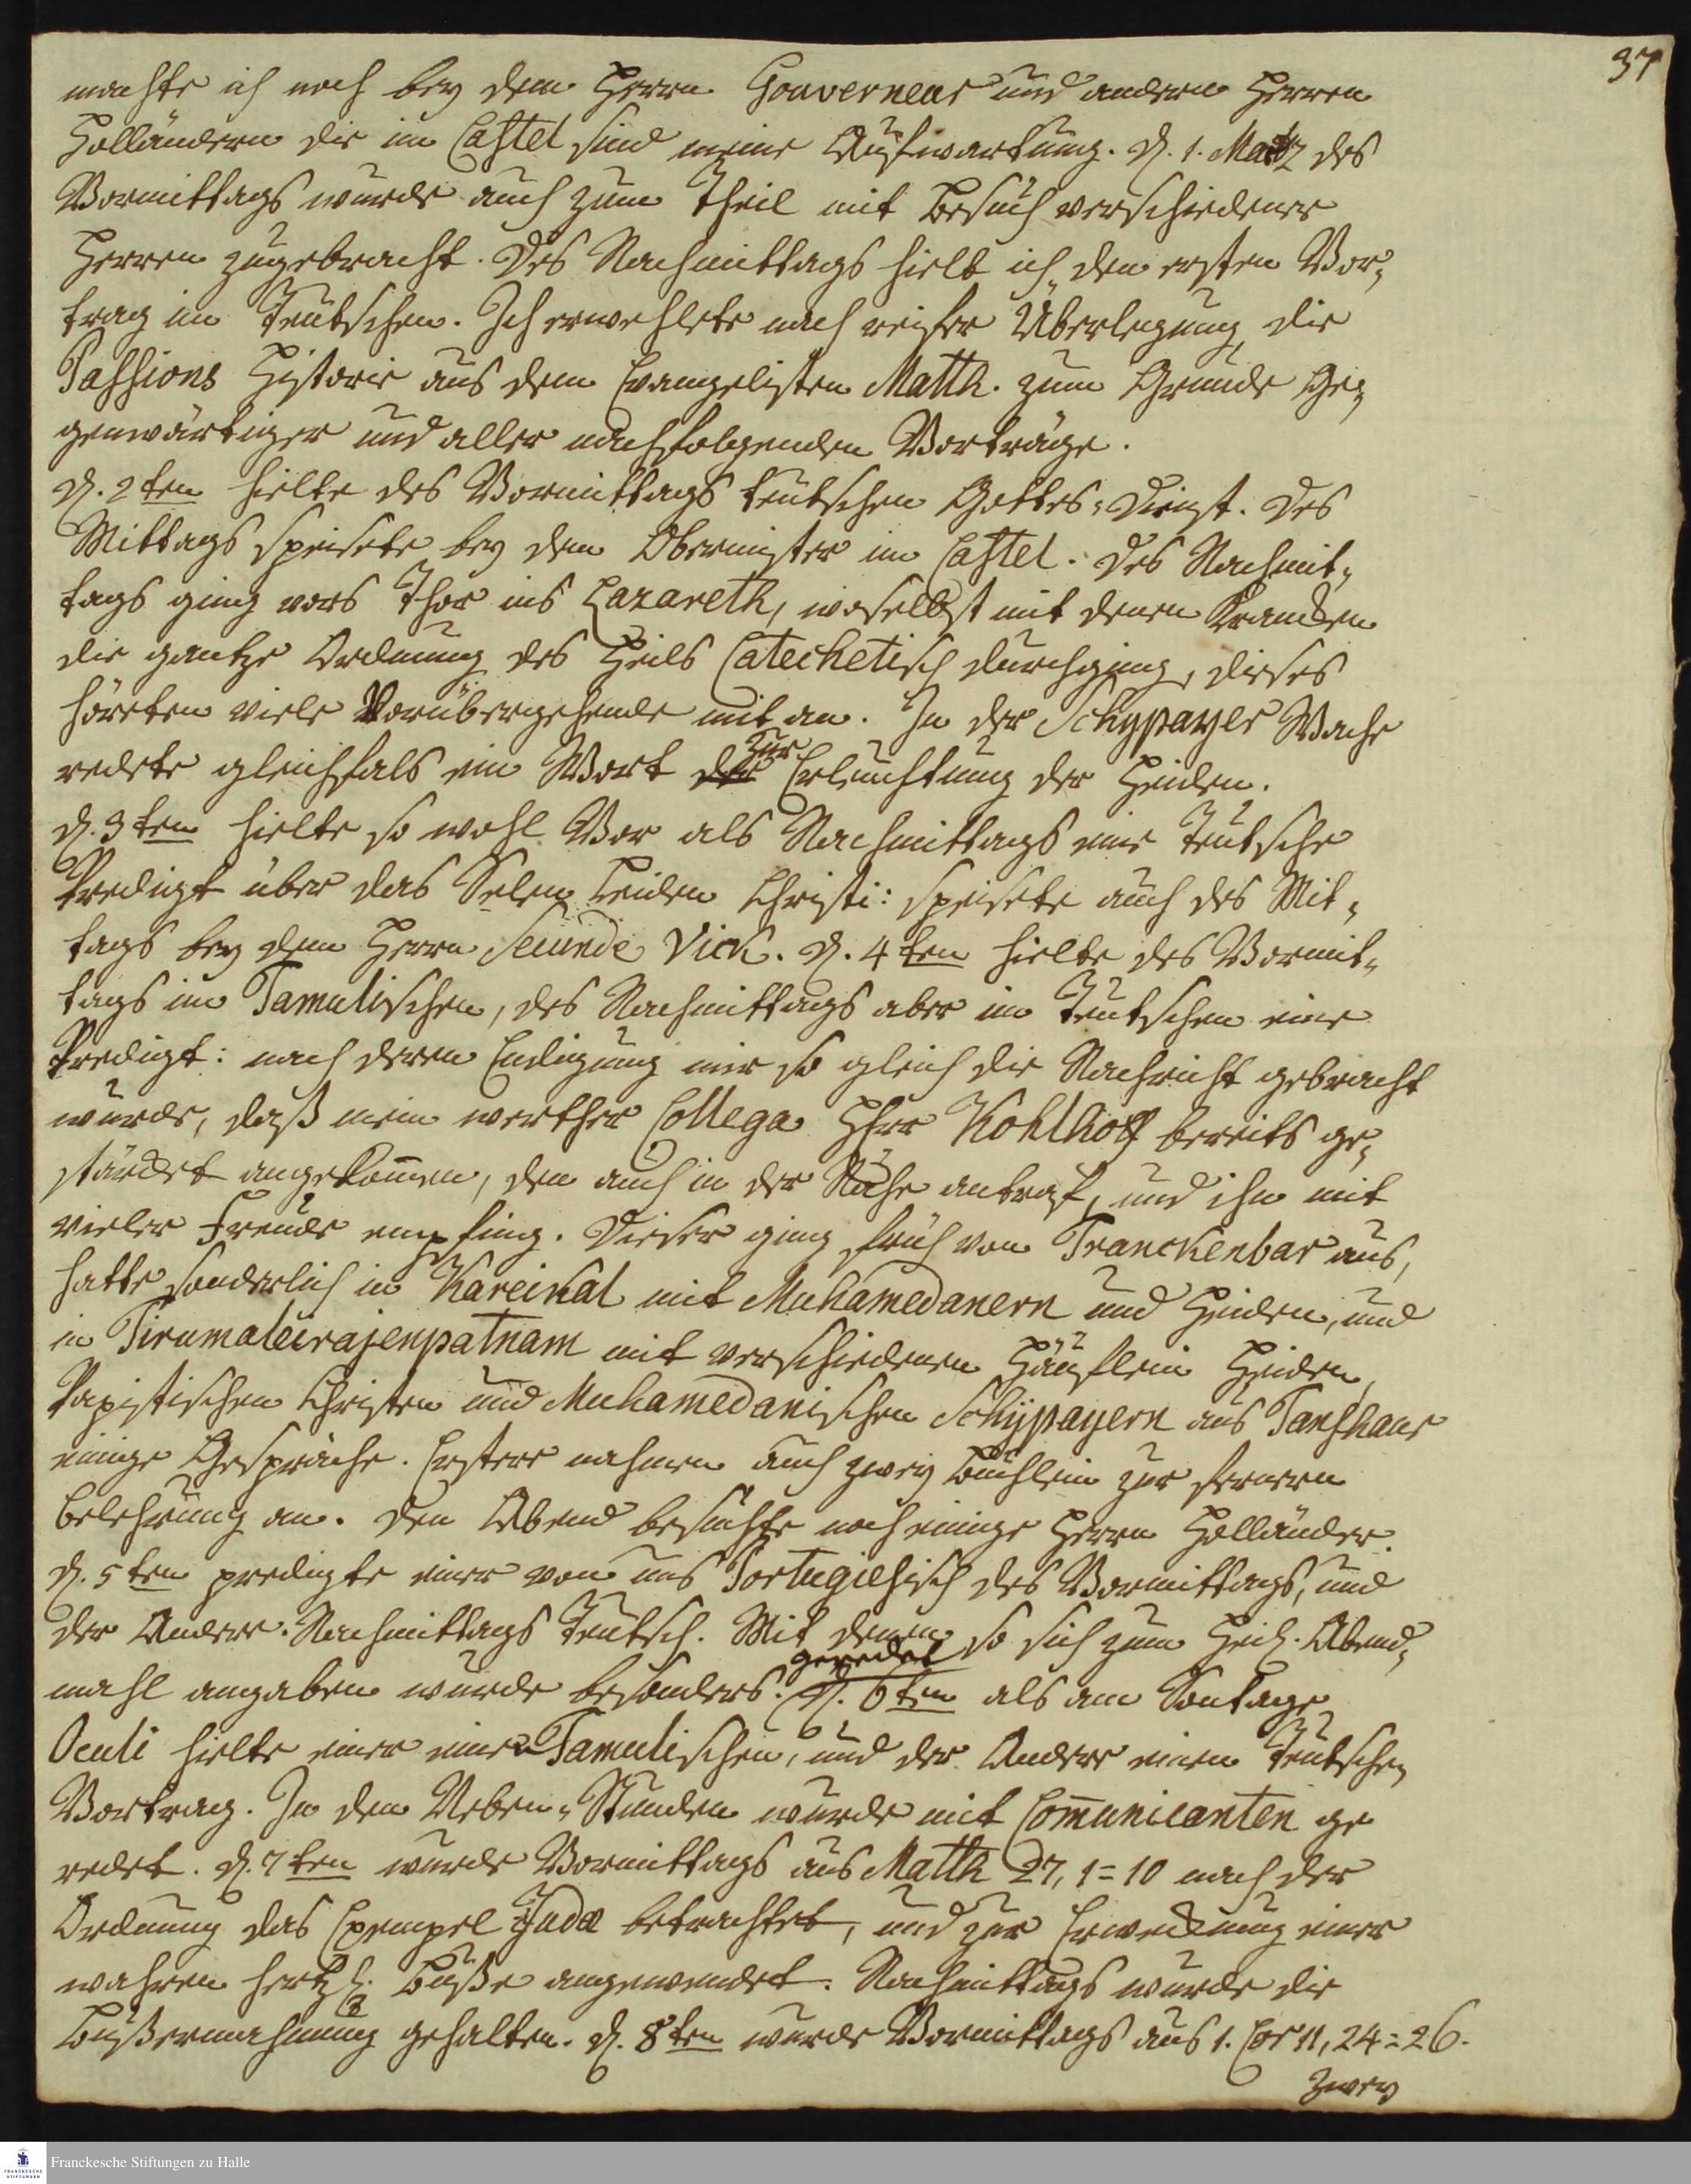 37
machte ich noch bey dem Herrn Gouverneur und andern Herren
Holländern die im Castel sind meine Aufwartung. d. 1. Martz des
Vormittags wurde auch zum Theil mit Besuch verschiedener
Herren zugebracht. Des Nachmittags hielt ich den ersten Vor-
trag im Teutschen. Ich erwehlete nach reifer Überlegung die
Passions Historie aus dem Evangelisten Matth. zum Grunde Ge-
genwärtiger und aller nachfolgenden Vorträge.
d. 2ten hielte des Vormittags teutschen Gottes-Dienst. Des
Mittags speisete bey dem Obermeister im Castel. Des Nachmit-
tags ging vors Thor ins Lazareth, woselbst mit denen Krancken
die gantze Ordnung des Heils Catechetisch durchging, dieses
höreten viele Vorübergehende mit an. In der Schypayer Wache
redete gleichfals ein Wort der zur Erleuchtung der Heiden.
d. 3ten hielte so wohl Vor als Nachmittags eine Teutsche
Predigt über das Selen Leiden Christi: speisete auch des Mit-
tags bey dem Herrn Secunde Vick. d. 4ten hielte des Vormit-
tags im Tamulischen, des Nachmittags aber im Teutschen eine
Predigt: nach deren Endigung mir so gleich die Nachricht gebracht
wurde, daß mein werther Collega Hr Kohlhoff bereits ge-
stärcket angekom̄en, den auch in der Nähe antraf, und ihn mit
vieler Freude empfing. Dieser ging früh von Tranckenbar aus,
hatte sonderlich in Kareikal mit Muhamedanern und Heiden, und
in Tirumaleirajenpatnam mit verschiedenen Häuflein Heiden,
Papistischen Christen und Muhamedanischen Schypayern aus Tanshaur
einige Gespräche. Erstere nahmen auch zwey Büchlein zur fernern
Belehrung an. Den Abend besuchte noch einige Herrn Holländer.
d. 5ten predigte einer von uns Portugiesisch des Vormittags, und
der Andere Nachmittags Teutsch. Mit denen so sich zum Heil. Abend-
mahl angaben wurde besonders geredet. d. 6ten als am Sontage
Oculi hielte einer einen Tamulischen, und der Andere einen Teutschen
Vortrag. In den Neben-Stunden wurde mit Com̄unicanten ge
redet. d. 7ten wurde Vormittags aus Matth 27, 1=10 nach der
Ordnung das Exempel Judæ betrachtet, und zur Erweckung einer
wahren hertzl. Buße angewendet. Nachmittags wurde die
Bußermahnung gehalten. d. 8ten wurde Vormittags aus 1. Cor 11, 24=26.
zwey
Franckesche Stiftungen zu Halle